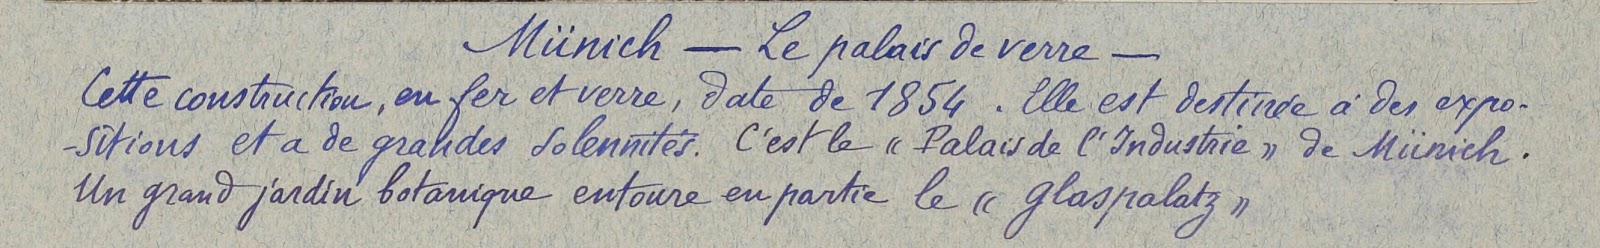 Münich — Le palais de verre —
Cette construction, en fer et verre, date de 1854. Elle est destinée à des expo-
-sitions et a de grandes solennités. C'est le « Palais de l'Industrie » de Münich.
Un grand jardin botanique entoure en partie le « Glaspalatz »